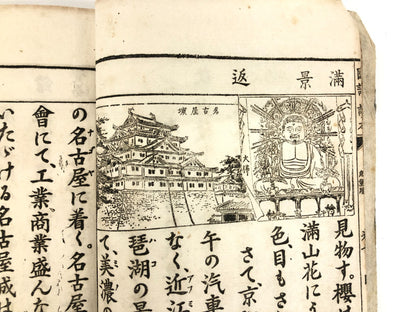 滿景返
大佛
名古屋城
見物す。櫻
滿山花にう
色、目もさ
さて、京
午の汽車
なく、近江
琵琶湖の景
て、美濃の
の名古屋に着く。名古屋
會にて、工業商業盛んな
いたゞける名古屋城は